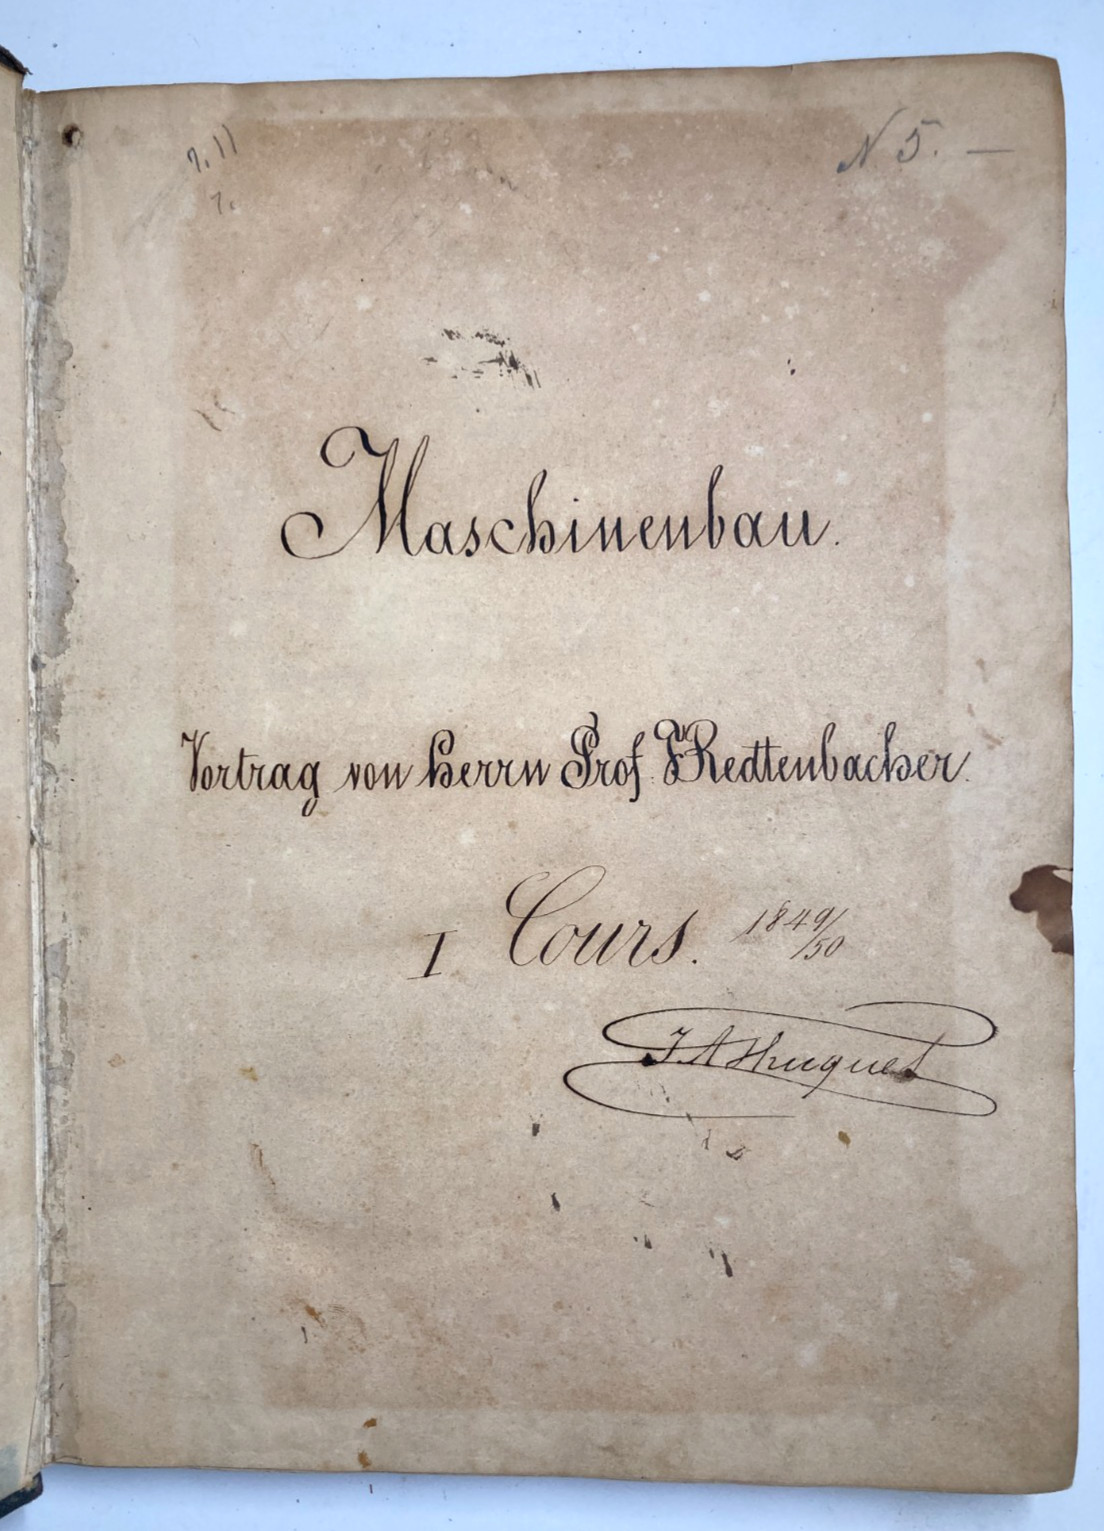 N 5. —
Maschinenbau.
Vortrag von Herrn Prof. F Redtenbacher.
I Cours. 1849/50
J. A Huguet